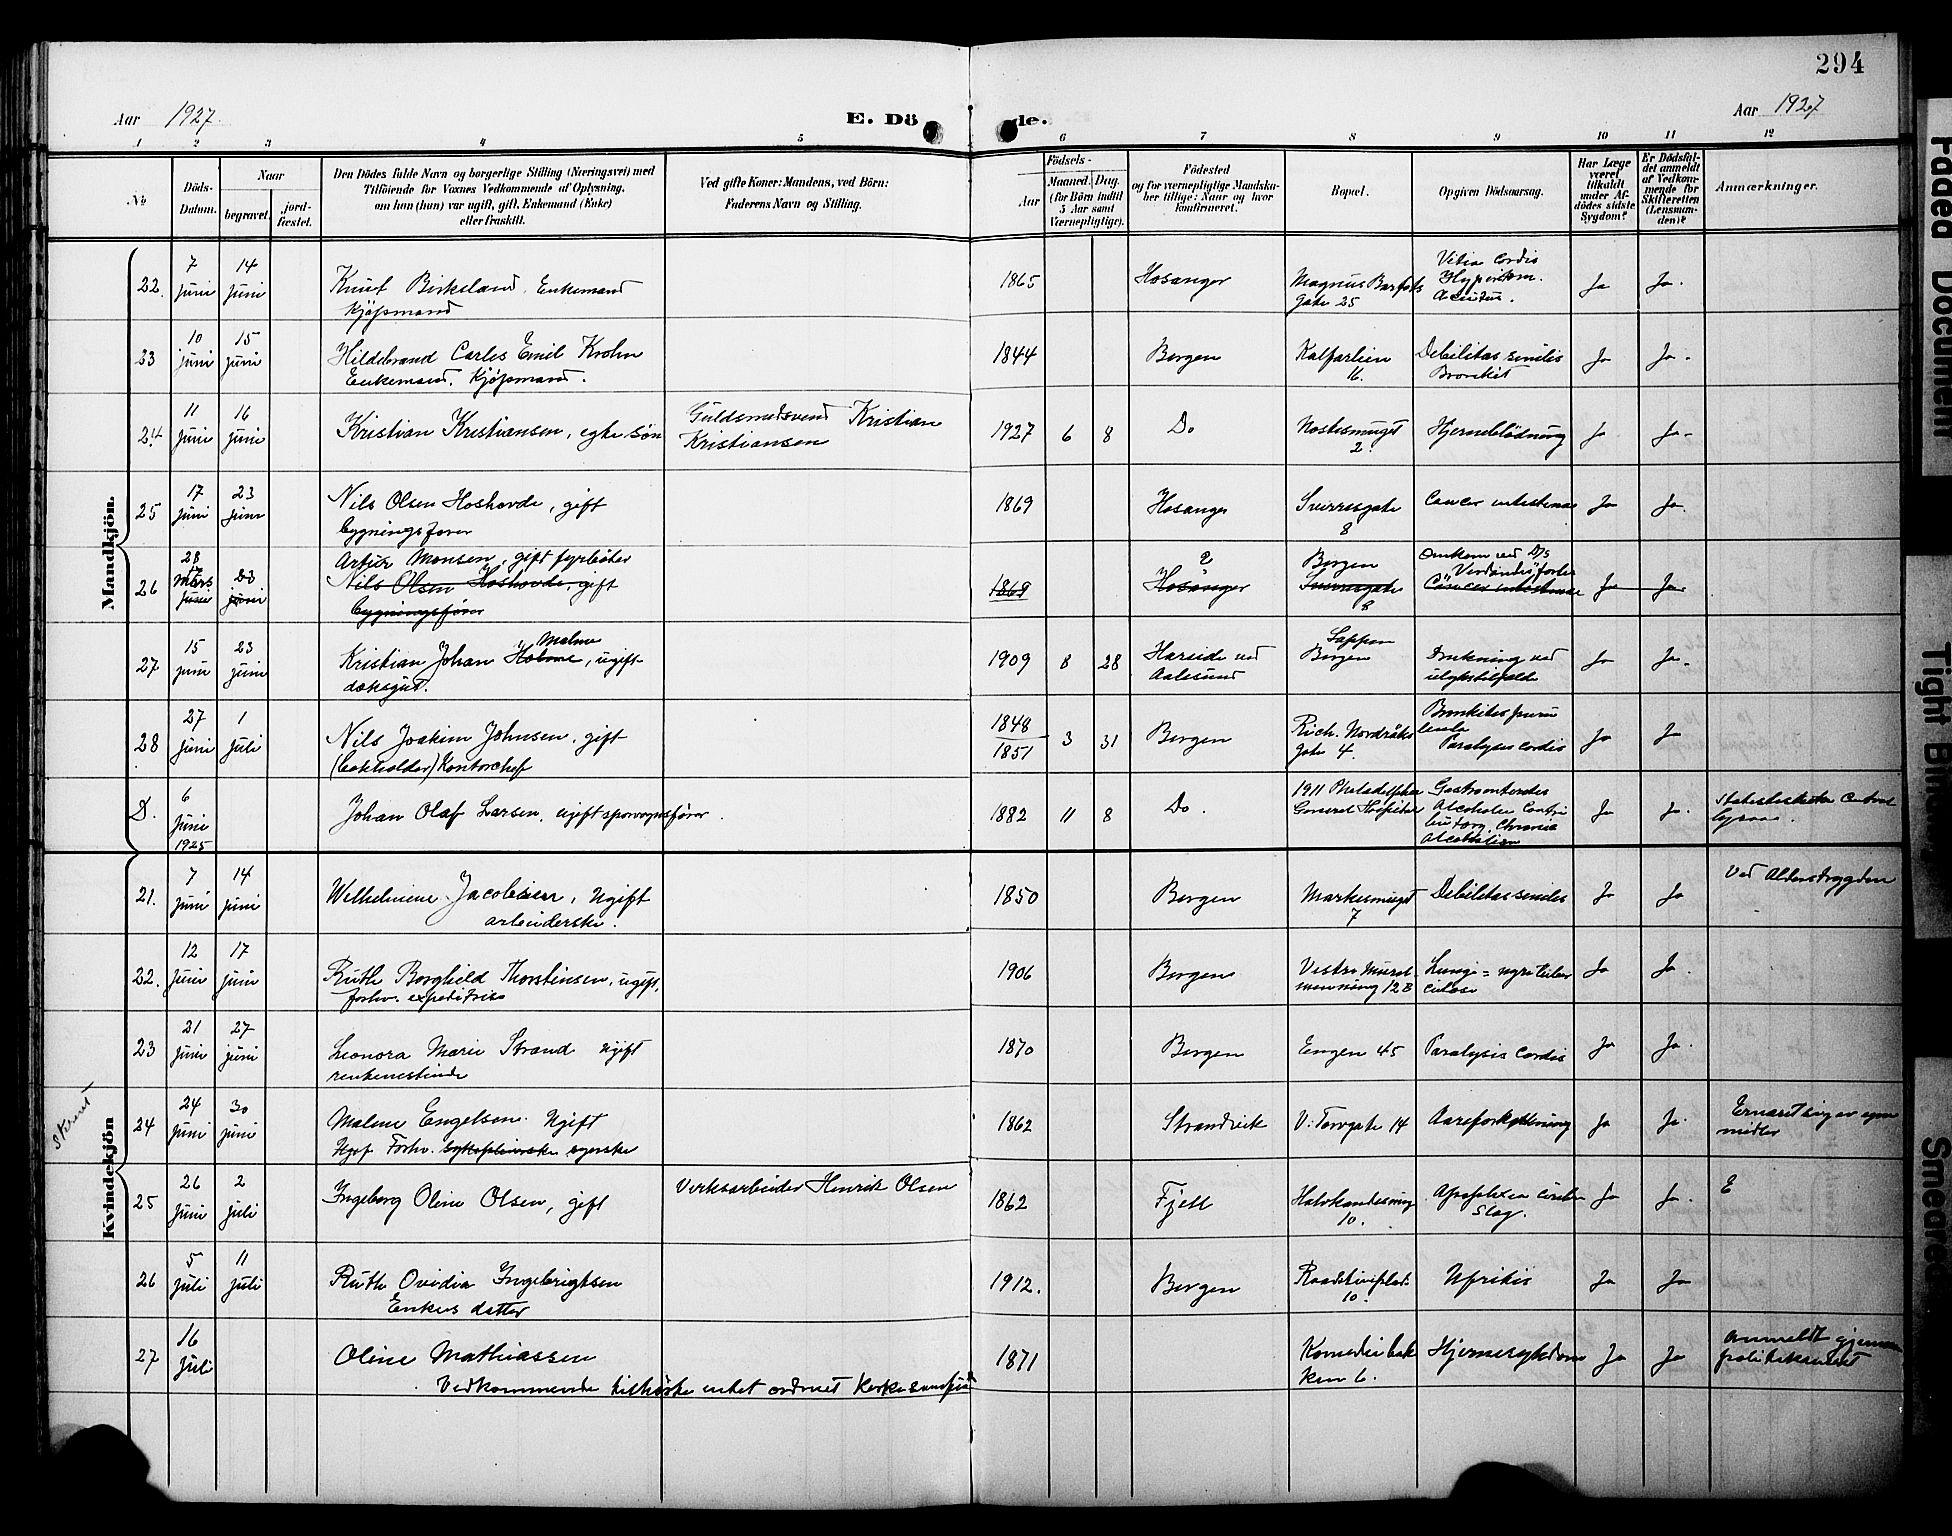 294
Aar 1927.
E. Dö de.
Aar 1927
1 2 3 4 5 6 7 8 9 10 11 12
No
Döds-Datum.
Naar
begravet.
jord-fæstet.
Den Dödes fulde Navn og borgerlige Stilling (Næringsvei) med
Tilföiende for Voxnes Vedkommende af Oplysning,
om han (hun) var ugift, gift, Enkemand (Enke)
eller fraskilt.
Ved gifte Koner: Mandens, ved Börn:
Faderens Navn og Stilling.
Födsels-
Aar
Maaned. Dag.
(for Börn indtil
5 Aar samt
Værnepligtige).
Födested
og for værnepligtige Mandska-
ber tillige: Naar og hvor
konfirmeret.
Bopæl.
Opgiven Dödsaarsag.
Har Læge
været
tilkaldt
under Af-
dödes sidste
Sygdom?
Er Dödsfal-
det anmeldt
af Vedkom-
mende for
Skifteretten
(Lensman-
den)?
Anmærkninger.
Mandkjön.
22. 7 Juni 14 Juni Knut Birkeland. Enkemand 1865 Hosanger Magnus Barfots Vitia Cordis Ja Ja.
Kjöpmand gate 25
23 10 Juni 15 Juni Hildebrand Carles Emil Krohn 1844 Bergen Kalfarlien Debilitas senilis Ja Ja.
Enkemand. Kjöpmand. 16. Bronkit
24 11 Juni 16 Juni Kristian Kristiansen, egte sön Guldsmedsvend Kristian 1927 6 8 Do Nostesmuget Hjerneblödning Ja Ja.
Kristiansen 2.
25 17 Juni 23 Juni Nils Olsen Hoshovde, gift 1869 Hosanger Sverresgate Cancer intestinae Ja Ja.
bygningsfører 8
26 28 Mars Juni 23 juni Artur Monsen, gift fyrböter ? Bergen Omkom ved D/S
Nils Olsen Hoshovde, gift 1869 Hosanger Sverresgate "Verdandes" forlis Cancer intestinae Ja Ja.
bygningsfører 8
27 15 juni 23 juni Kristian Johan Holme Malme, ugift 1909 8 28 Hareide ved Bergen Drukning ved Ja Ja.
dæksgut. Aalesund ulykkestilfælde
28 27 Juni 1 Juli Nils Joakim Johnsen, gift 1848 1851 3 31 Bergen Rich. Nordråks Bronkites puru Ja Ja
(bokholder) Kontorchef gate 4. lenta Paralysis cordis
D. 6 Juni 1925 Johan Olaf Larsen, ugift sporvognsförer. 1882 11 8 Do. 1911 Philadelphia Ja Ja.
General Hospital Alcoholic Contri butory. Chronic Alcoholism
Kvindekjön
21. 7 Juni 14 Juni Wilhelmine Jacobsen, Ugift 1850 Bergen Markesmuget Debilitas senilis Ja Ja
arbeiderske. 7
22. 12 Juni 17 Juni Ruth Borghild Thorstensen, ugift, 1906 Bergen Vestre Muræl Ja Ja.
forhv. expeditrise menning 12B
23 21 Juni 27 juni Leonora Marie Strand ugift 1870 Bergen Engen 45 Paralysis Cordis Ja Ja.
24 24 Juni 30 juni Malene Engelsen. Ugift 1862 Strandvik V. Torvgate 14 Aareforkalkning Ja Ja. Ernæret sig av egne
Forhv. sykepleierske syerske midler
25 26 Juni 2 juli Ingeborg Oline Olsen, gift Verksarbeider Henrik Olsen 1862 Fjell Ja Ja. E
10. Slag.
26 5 juli 11 juli Ruth Ovidia Ingebrigtsen 1912. Bergen Nefritis Ja Ja
Enkes datter 10.
27 16 juli Oline Mathiassen 1871 Komediebak Hjernesykdom Ja Ja Anmeldt gjennem
ken 6. politikamret
Vedkommende tilhörte intet ordnet Kirkesamfund
Faded Document
Tight Binding
Smeared